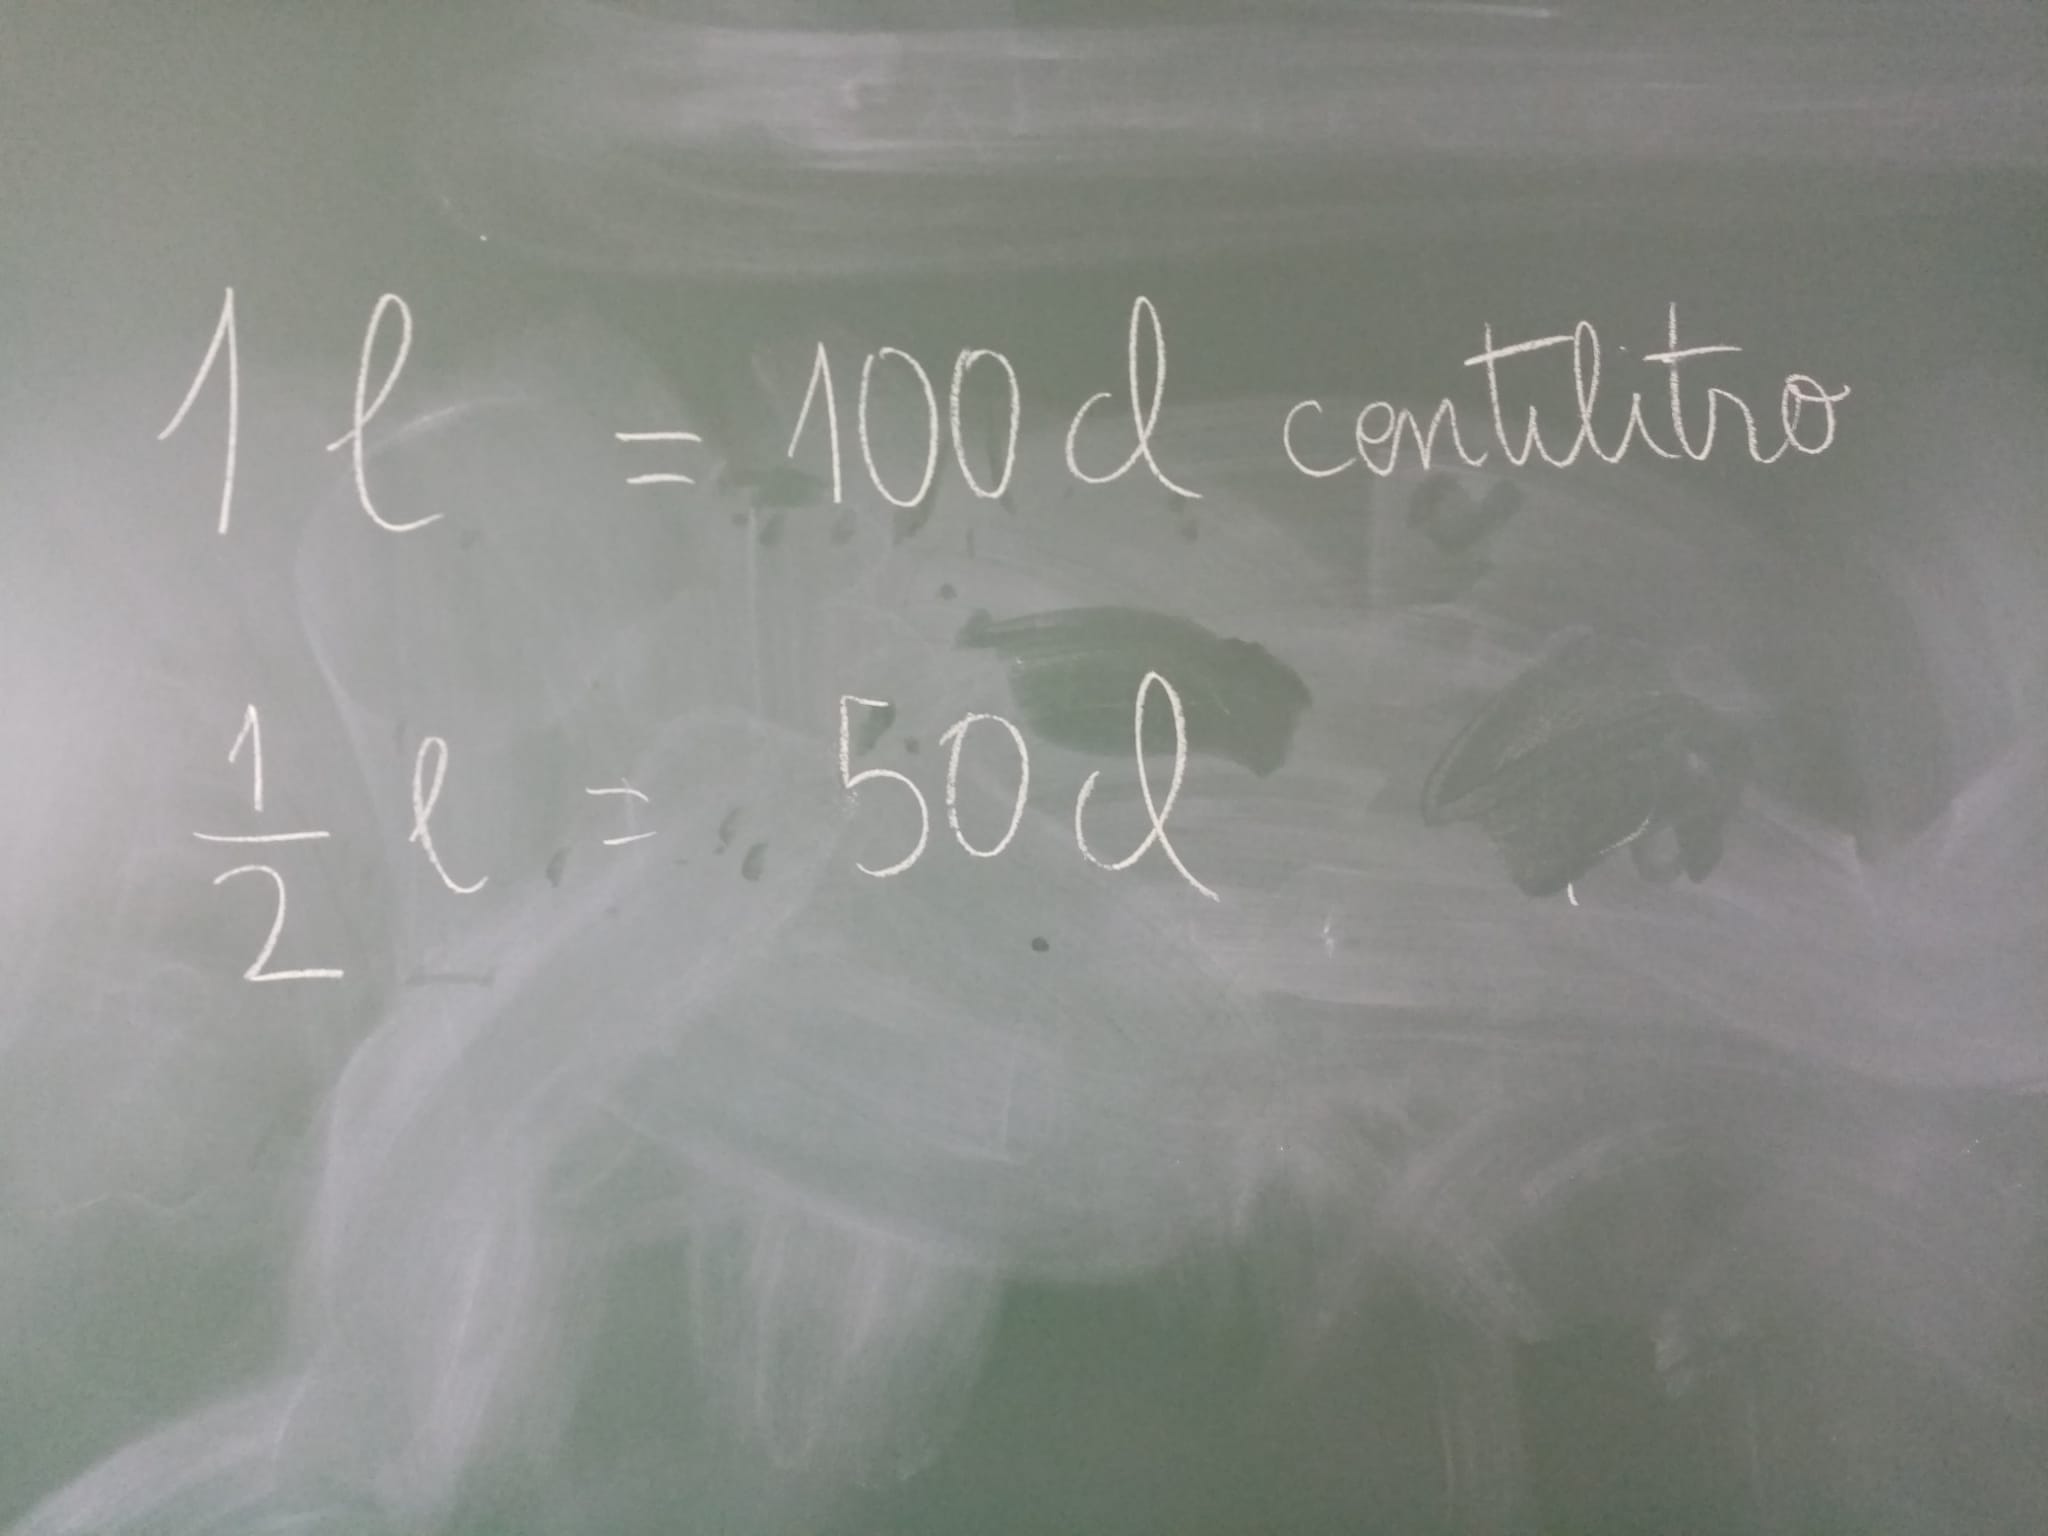 1 l = 100 cl centilitro
1/2 l = 50 cl